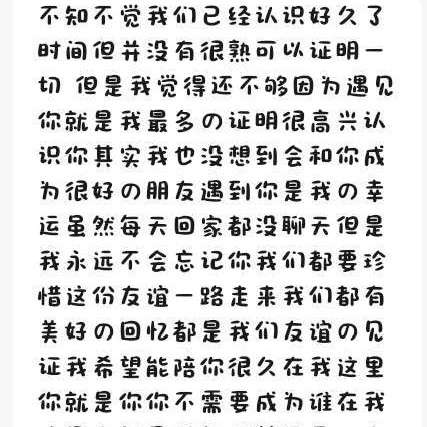 不知不觉我们已经认识好久了
时间但并没有很熟可以证明一
切 但是我觉得还不够因为遇见
你就是我最多の证明很高兴认
识你其实我也没想到会和你成
为很好の朋友遇到你是我の幸
运虽然每天回家都没聊天但是
我永远不会忘记你我们都要珍
惜这份友谊一路走来我们都有
美好の回忆都是我们友谊の见
证我希望能陪你很久在我这里
你就是你你不需要成为谁在我